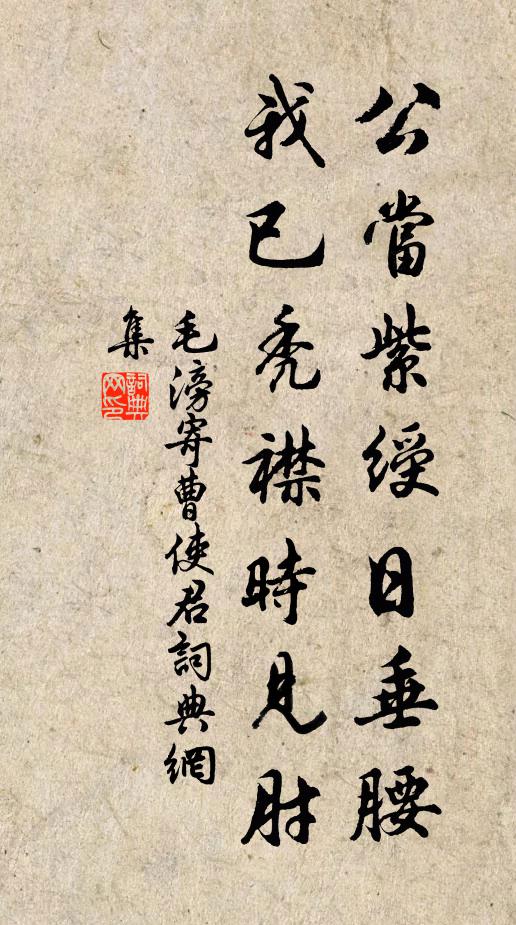 公當紫綬日垂腰
我已禿襟時見肘
毛滂寄曹使君詞典網
集
詞典
网印